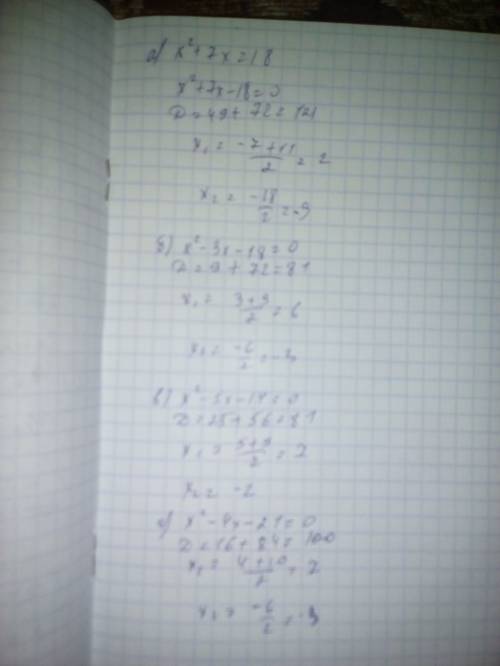 а) x²+7x=18
x²+7x-18=0
D=49+72=121
x₁ = -7+11/2 = 2
x₂ = -18/2 = -9
б) x²-3x-18=0
D=9+72=81
x₁ = 3+9/2 = 6
x₂ = -6/2 = -3
в) x²-5x-14=0
D=25+56=81
x₁ = 5+9/2 = 7
x₂ = -2
x²-4x-21=0
D=16+84=100
x₁ = 4+10/2 = 7
x₂ = -6/2 = -3